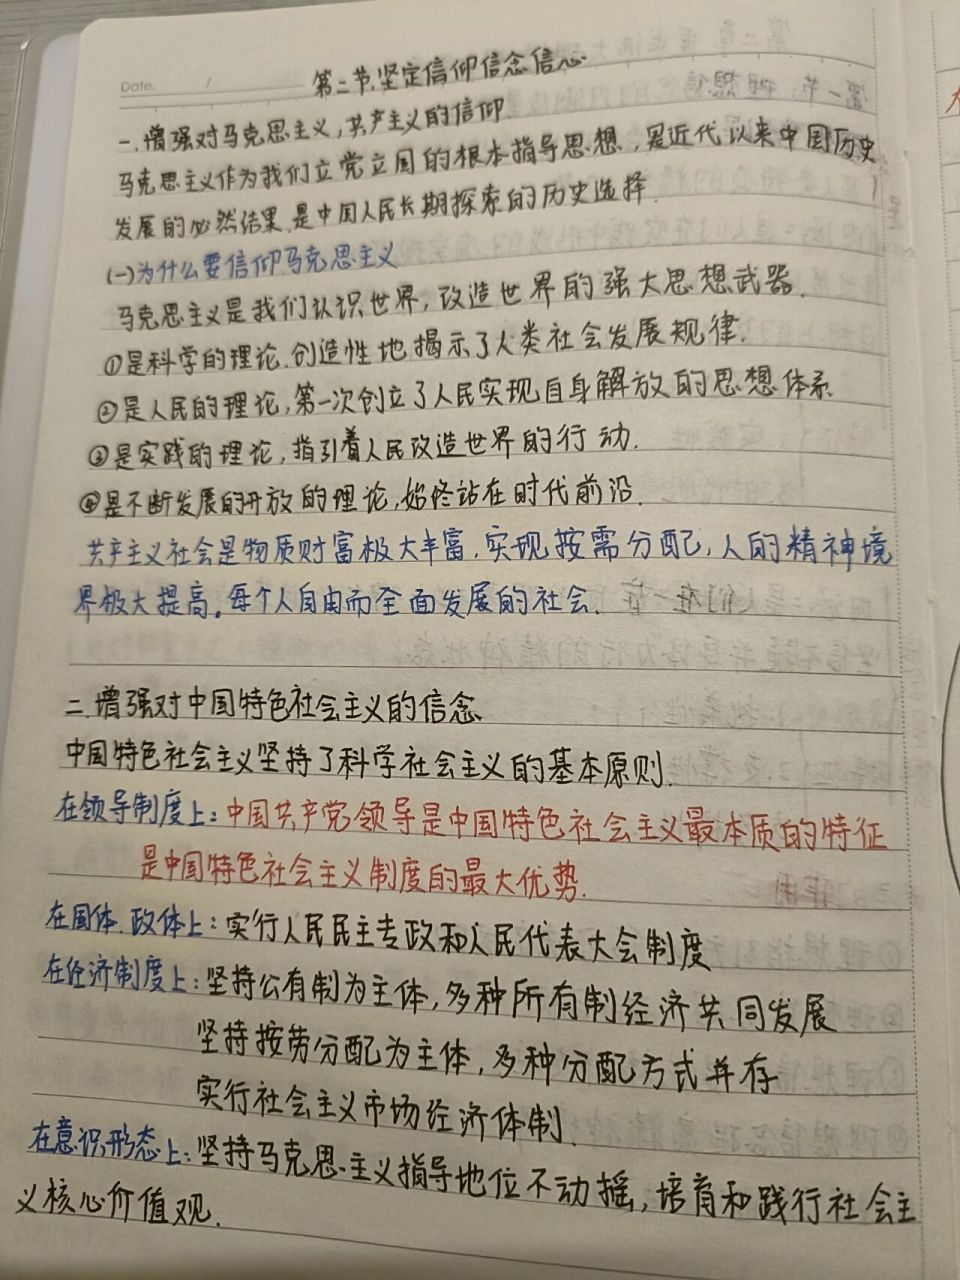 Date. /
第二节.坚定信仰信念信心
一.增强对马克思主义,共产主义的信仰.
马克思主义作为我们立党立国的根本指导思想,是近代以来中国历史
发展的必然结果.是中国人民长期探索的历史选择.
(一)为什么要信仰马克思主义
马克思主义是我们认识世界,改造世界的强大思想武器.
①是科学的理论.创造性地揭示了人类社会发展规律.
②是人民的理论,第一次创立了人民实现自身解放的思想体系
③是实践的理论,指引着人民改造世界的行动.
④是不断发展的开放的理论,始终站在时代前沿.
共产主义社会是物质财富极大丰富.实现按需分配,人的精神境
界极大提高。每个人自由而全面发展的社会.
二.增强对中国特色社会主义的信念
中国特色社会主义坚持了科学社会主义的基本原则.
在领导制度上:中国共产党领导是中国特色社会主义最本质的特征
是中国特色社会主义制度的最大优势.
在国体.政体上:实行人民民主专政和人民代表大会制度
在经济制度上:坚持公有制为主体,多种所有制经济共同发展
坚持按劳分配为主体,多种分配方式并存
实行社会主义市场经济体制.
在意识形态上:坚持马克思主义指导地位不动摇,培育和践行社会主
义核心价值观.